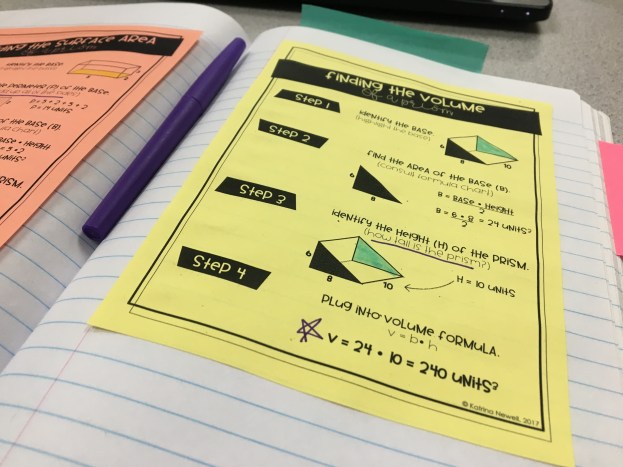 ING THE SURFACE AREA
OF THE BASE (B).
BASE • HEIGHT
= 3 • 2
UNITS²
RISM.
FINDING THE VOLUME
OF A PRISM
STEP 1
IDENTIFY THE BASE.
(highlight the base)
6
8
10
STEP 2
FIND THE AREA OF THE BASE (B).
(consult formula chart)
6
8
B = BASE • HEIGHT
2
B = 6 • 8 = 24 UNITS²
2
STEP 3
IDENTIFY THE HEIGHT (H) OF THE PRISM.
(how tall is the prism?)
6
8
10
H = 10 UNITS
STEP 4
PLUG INTO VOLUME FORMULA.
V = b • h
V = 24 • 10 = 240 UNITS³
© Katrina Newell, 2017